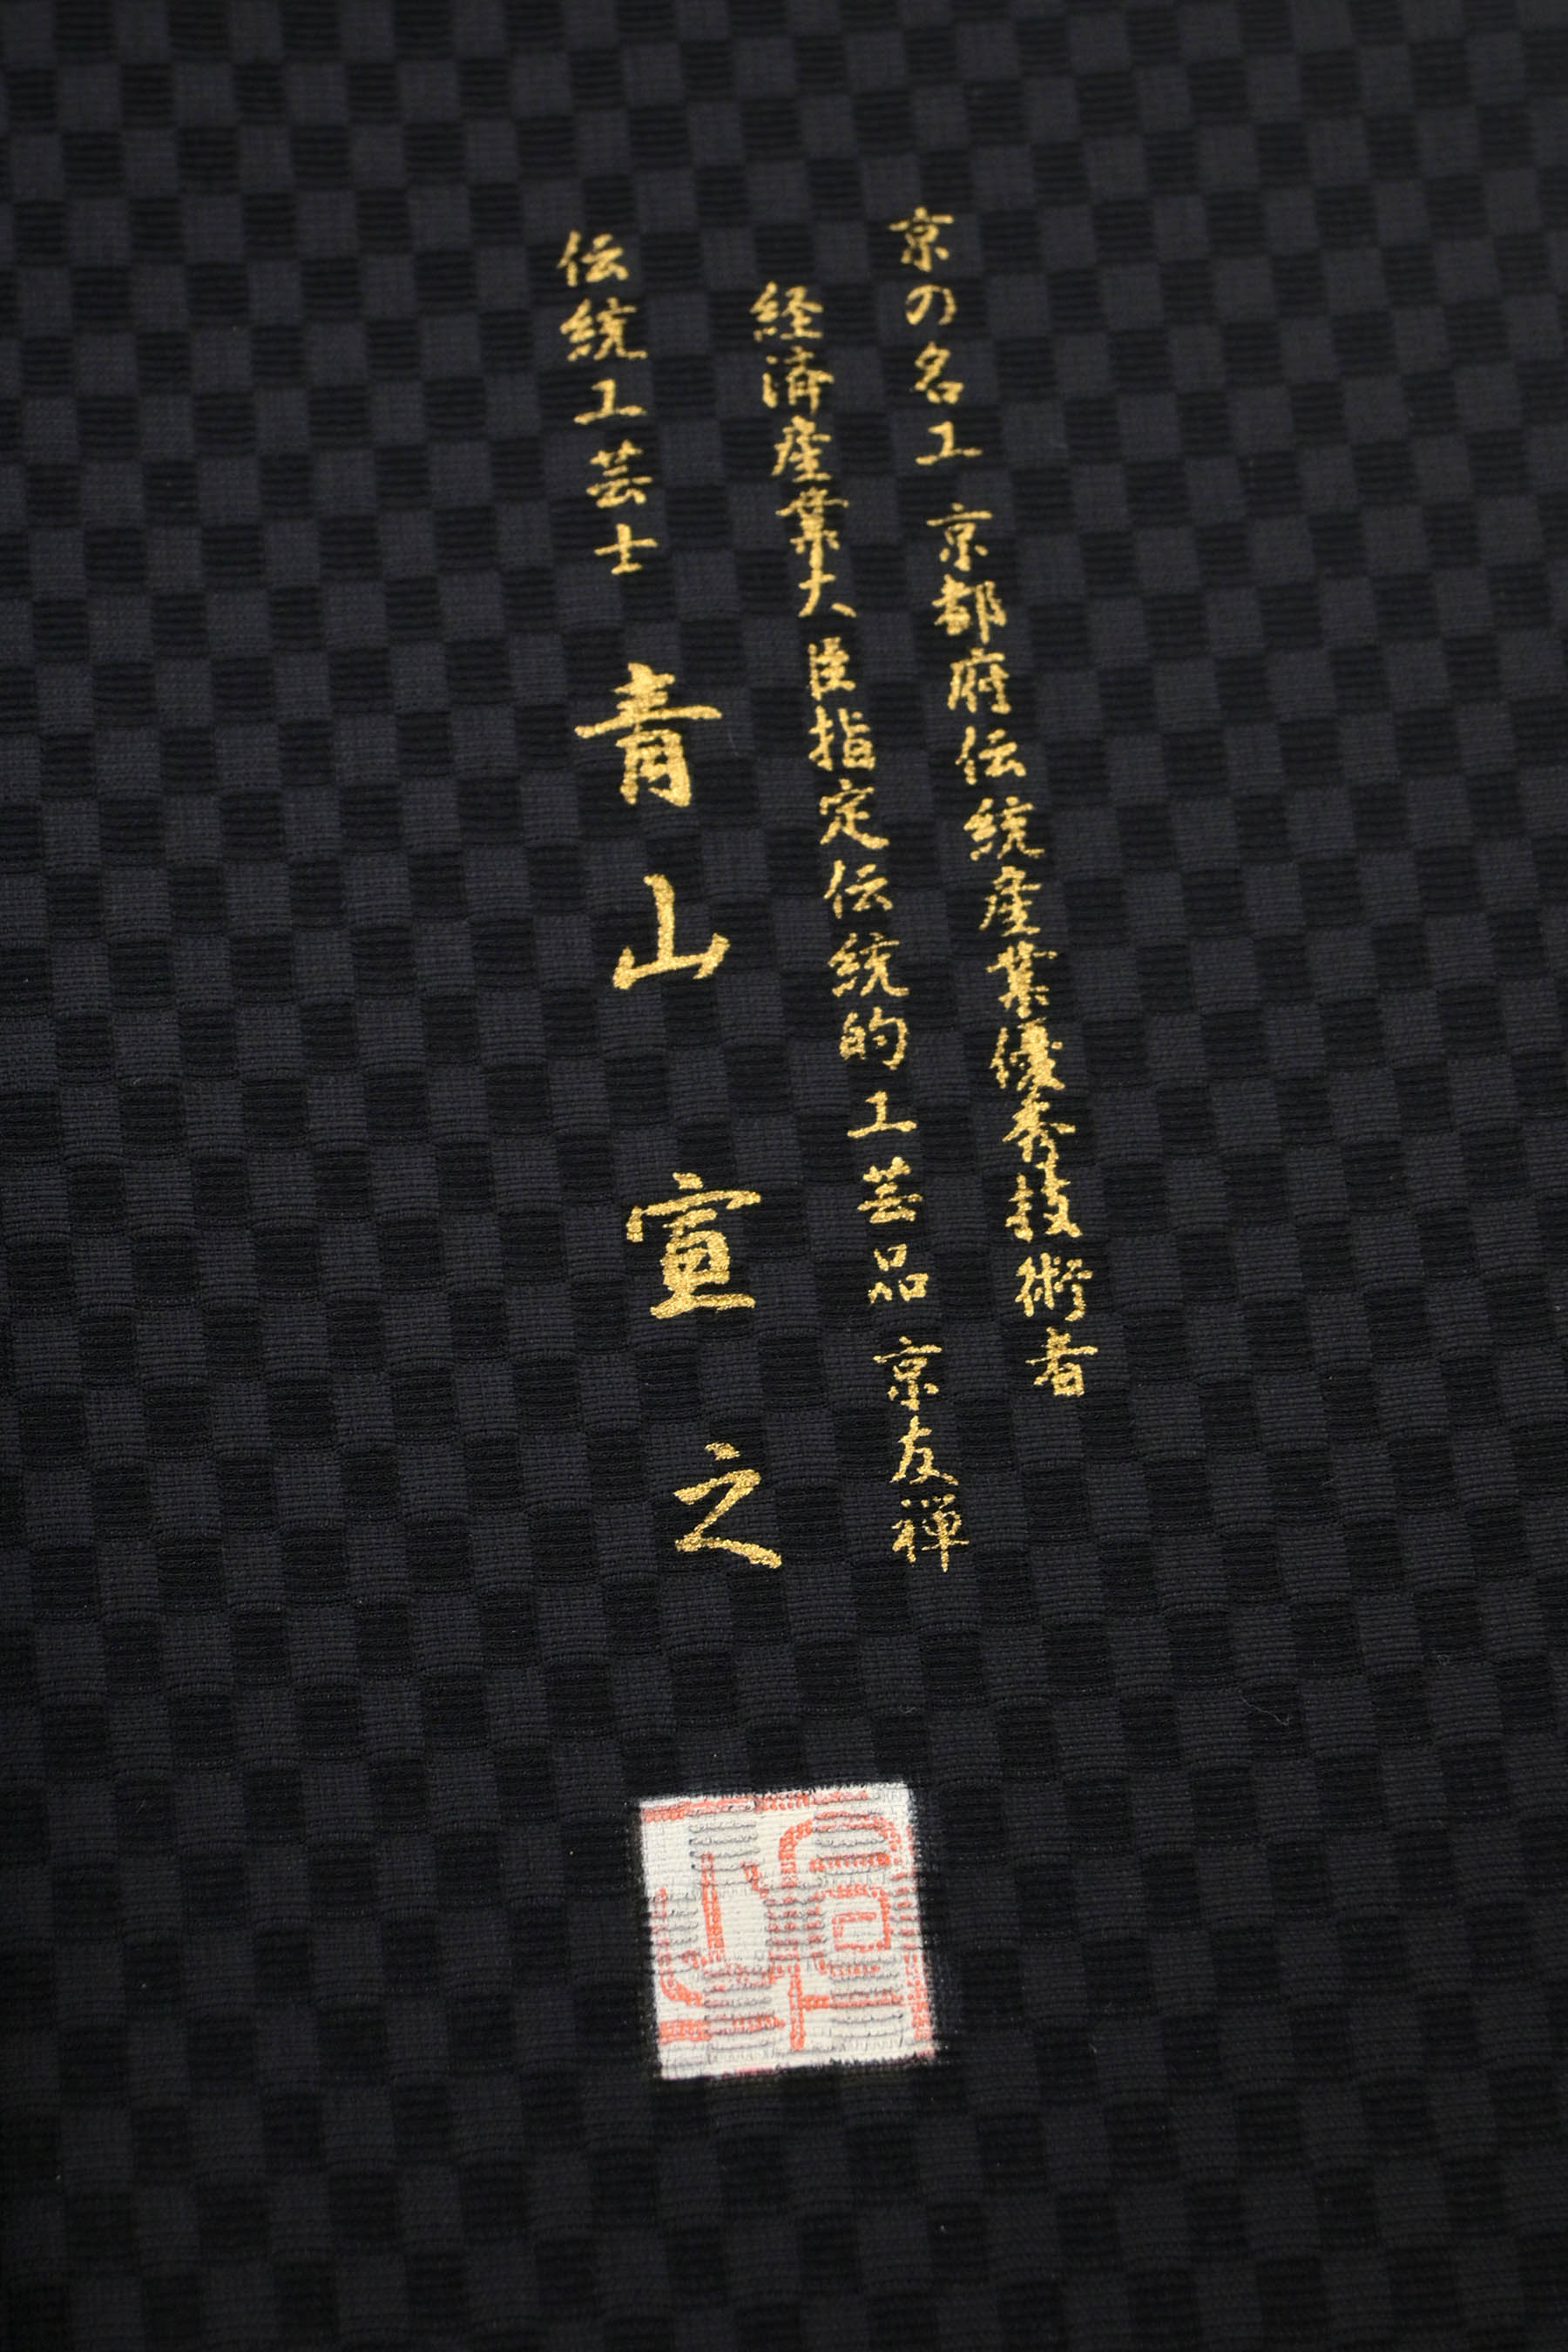 京の名工 京都府伝統産業優秀技術者
経済産業大臣指定伝統的工芸品 京友禅
伝統工芸士 青山 宣之